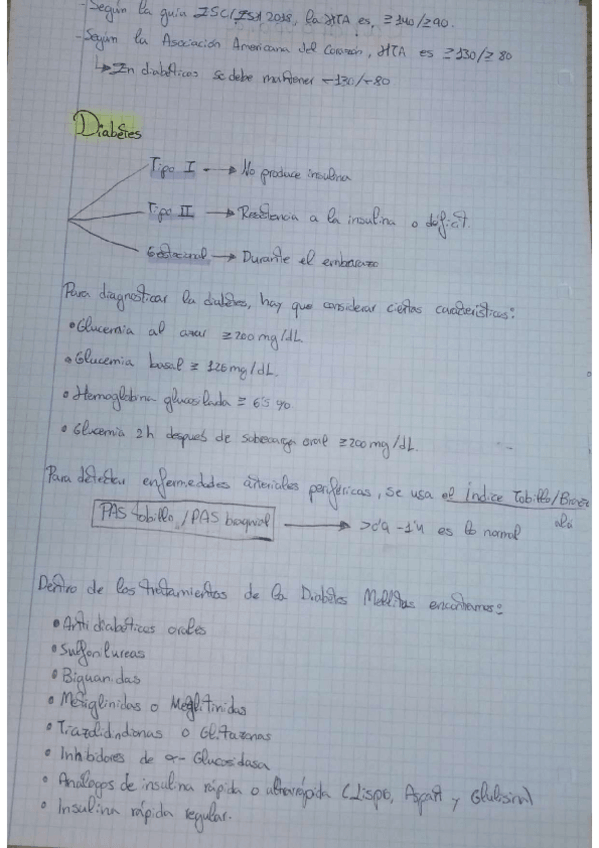 - Según la guía ESC/ESH 2018, la HTA es, ≥140/≥90.
- Según la Asociación Americana del Corazón, HTA es ≥130/≥80
↳ En diabéticos se debe mantener -130/-80
Diabetes
Tipo I → No produce insulina
Tipo II → Resistencia a la insulina o déficit.
Gestacional → Durante el embarazo
Para diagnosticar la diabetes, hay que considerar ciertas características:
• Glucemia al azar ≥200 mg/dL
• Glucemia basal ≥ 126 mg/dL.
• Hemoglobina glucosilada ≥ 6'5 %
• Glucemia 2h después de sobrecarga oral ≥200 mg/dL.
Para detectar enfermedades arteriales periféricas, se usa el Índice Tobillo/Braqu
ial
PAS tobillo/PAS braquial → >0'9 - 1'4 es lo normal
Dentro de los tratamientos de la Diabetes Mellitus encontramos:
• Antidiabéticos orales
• Sulfonilureas
• Biguanidas
• Metiglinidas o Meglitinidas
• Tiazolidindionas o Glitazonas
• Inhibidores de α- Glucosidasa
• Análogos de insulina rápida o ultrarrápida (Lispro, Aspart y Glulisina)
• Insulina rápida regular.